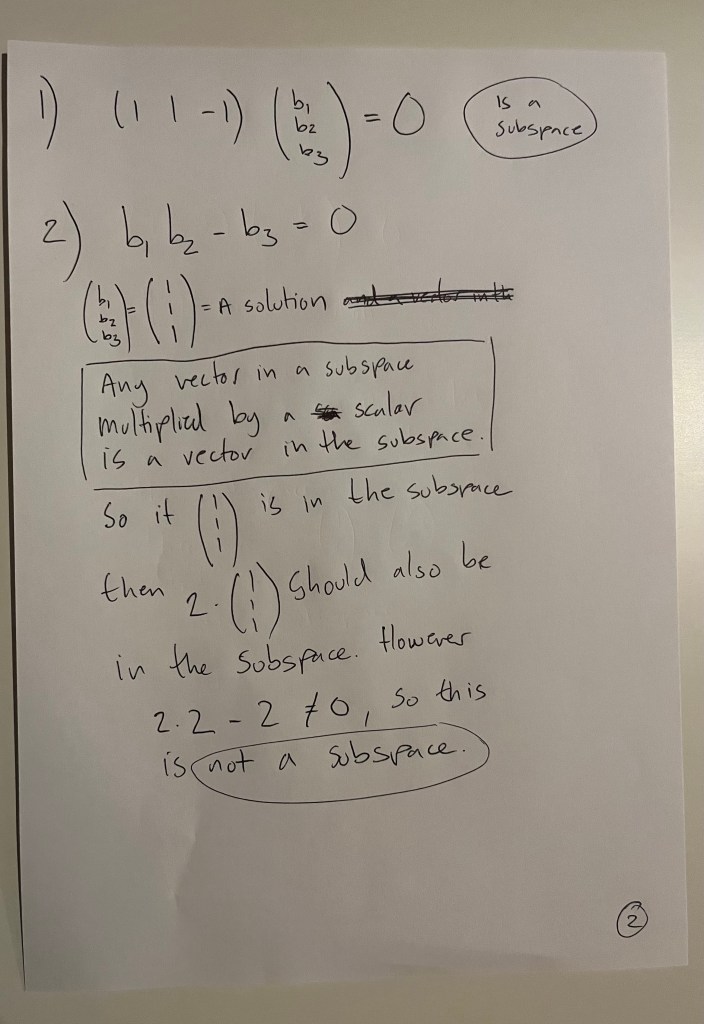 1) (1 1 -1) (b₁ b₂ b₃) = 0 Is a subspace
2) b₁ b₂ - b₃ = 0
(b₁ b₂ b₃) = (1 1 1) = A solution
Any vector in a subspace
multiplied by a scalar
is a vector in the subspace.
So if (1 1 1) is in the subspace
then 2·(1 1 1) should also be
in the subspace. However
2·2 - 2 ≠ 0, so this
is not a subspace.
2